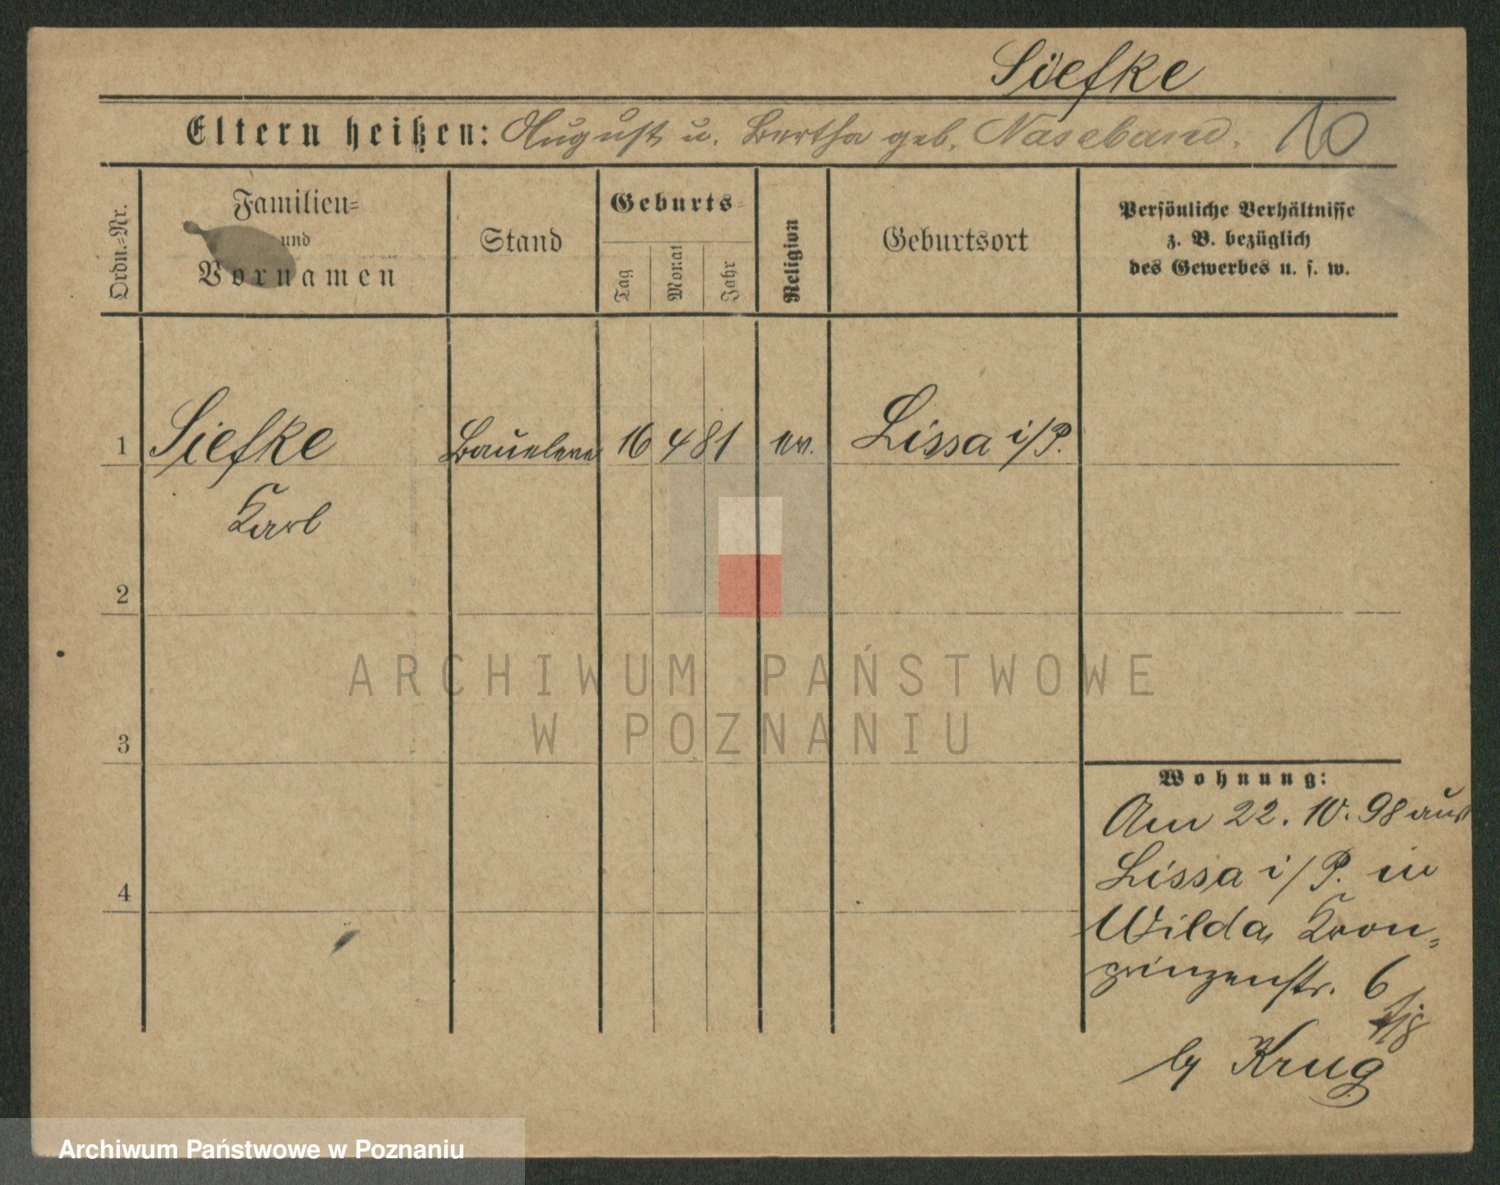 Siefke
Eltern heißen: August u. Bertha geb. Naseband. 10
Ordn.=Nr.
Familien=
und
Vornamen
Stand
Geburts=
Tag
Monat
Jahr
Religion
Geburtsort
Persönliche Verhältnisse
z. B. bezüglich
des Gewerbes u. s. w.
1 Siefke Baueleve 16 4 81 ev. Lissa i/P.
Karl
2
3
4
Wohnung:
Am 22. 10. 98 aus
Lissa i/P. in
Wilda, Kron-
prinzenstr. 6
by Krug
ARCHIWUM PAŃSTWOWE
W POZNANIU
Archiwum Państwowe w Poznaniu